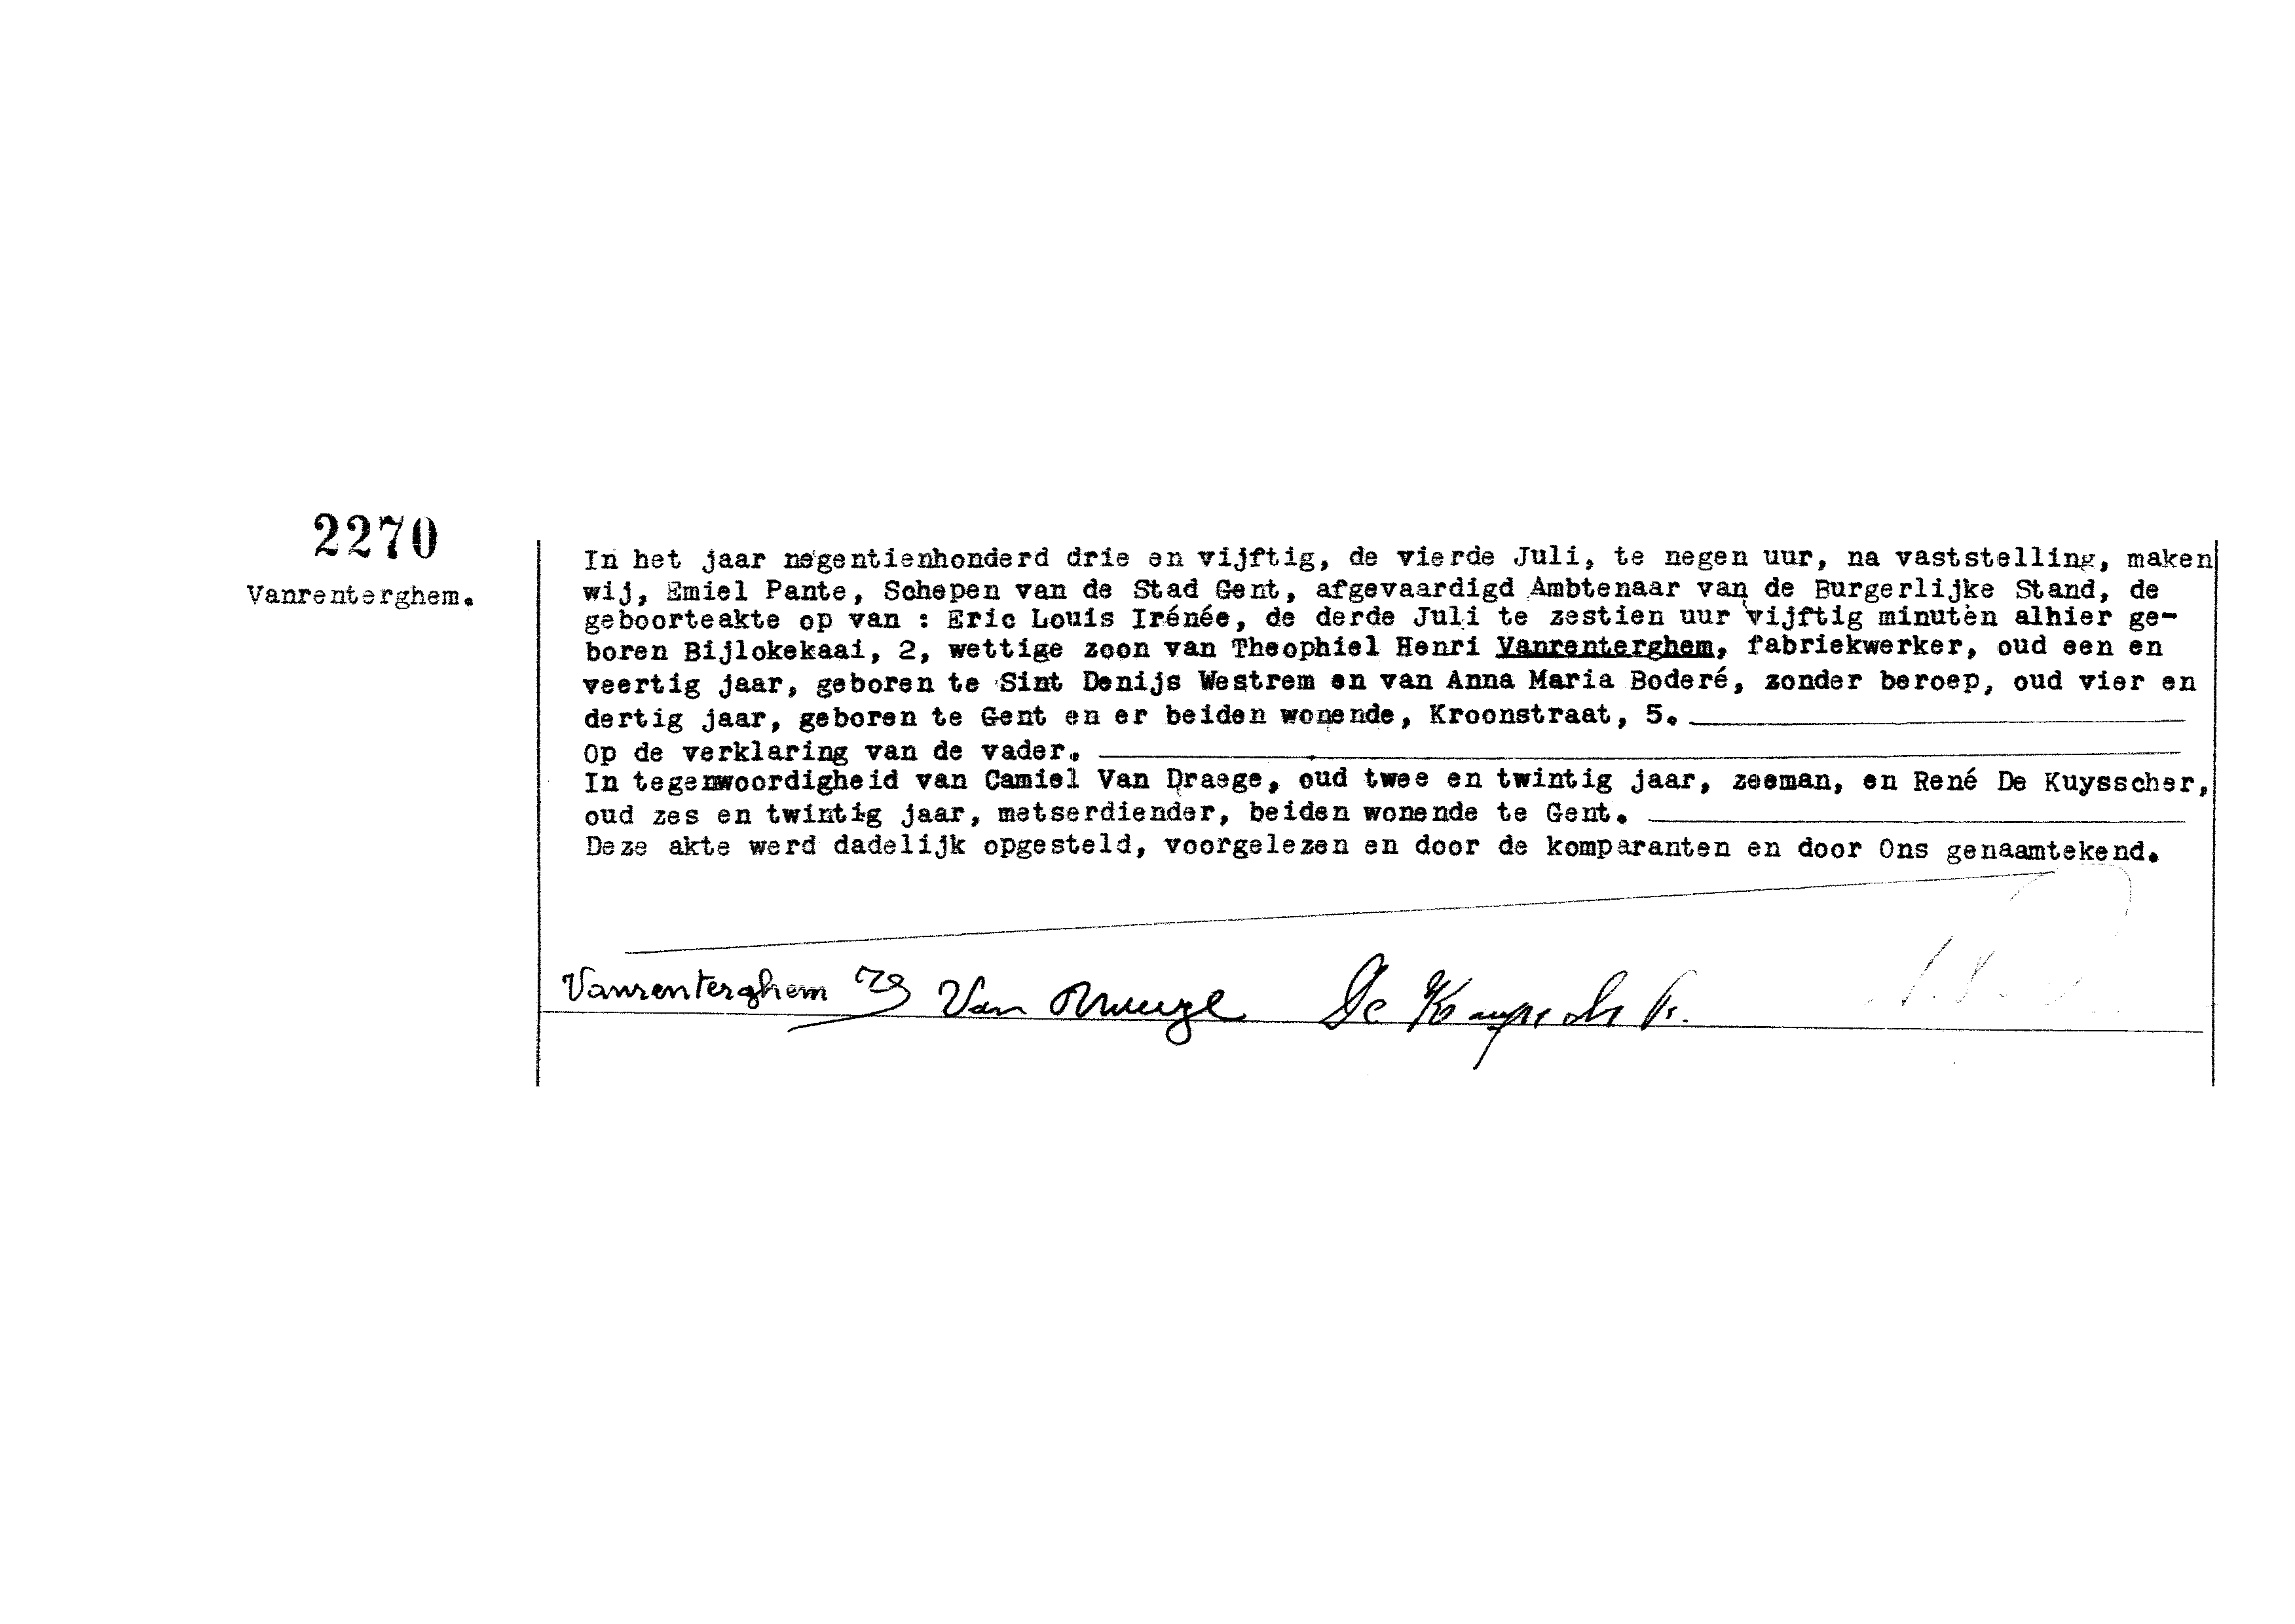 2270
Vanrenterghem.
In het jaar negentienhonderd drie en vijftig, de vierde Juli, te negen uur, na vaststelling, maken
wij, Emiel Pante, Schepen van de Stad Gent, afgevaardigd Ambtenaar van de Burgerlijke Stand, de
geboorteakte op van : Eric Louis Irénée, de derde Juli te zestien uur vijftig minuten alhier ge-
boren Bijlokekaai, 2, wettige zoon van Theophiel Henri Vanrenterghem, fabriekwerker, oud een en
veertig jaar, geboren te Sint Denijs Westrem en van Anna Maria Boderé, zonder beroep, oud vier en
dertig jaar, geboren te Gent en er beiden wonende, Kroonstraat, 5.
Op de verklaring van de vader.
In tegenwoordigheid van Camiel Van Draege, oud twee en twintig jaar, zeeman, en René De Kuysscher,
oud zes en twintig jaar, metserdiender, beiden wonende te Gent.
Deze akte werd dadelijk opgesteld, voorgelezen en door de komparanten en door Ons genaamtekend.
Vanrenterghem Van De